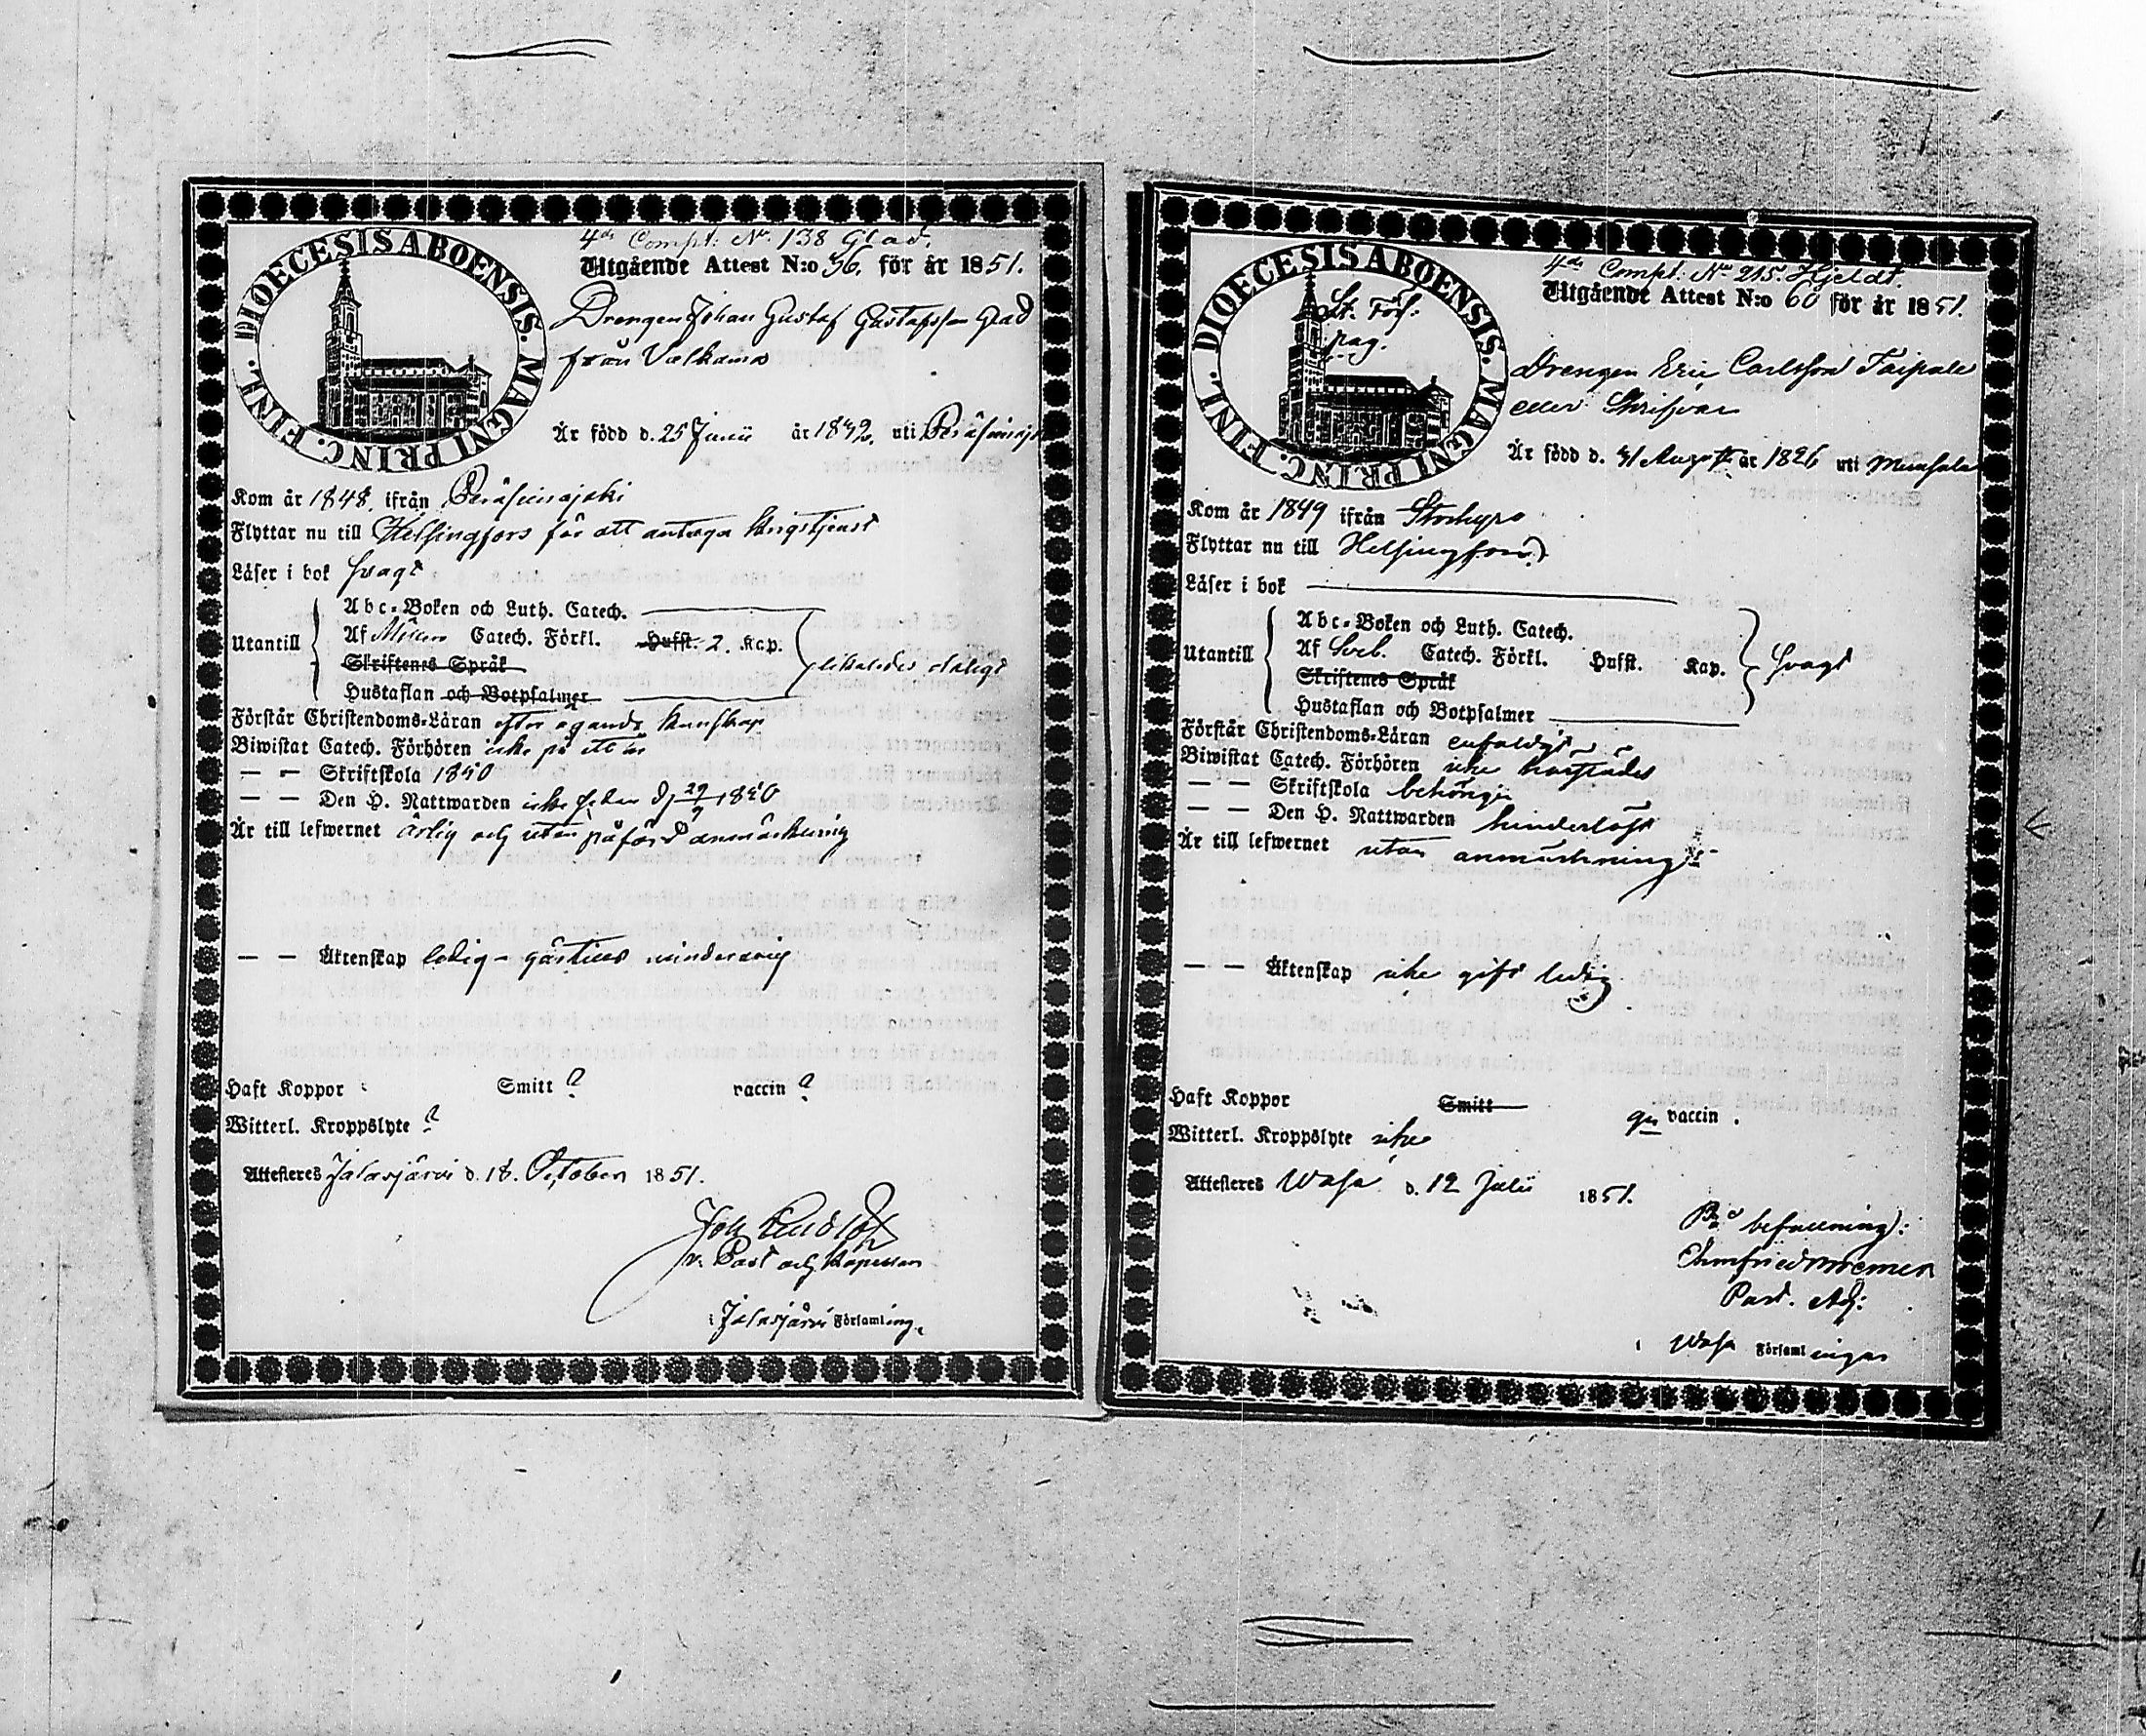 4de Compt: No. 138 Glad.
Utgående Attest N:o 56. för år 1851.
DIOECESIS ABOENSIS. MAGNI PRINC. FINL.
Drengen Johan Gustaf Gustafsson Glad
från Valkama
Är född d. 25 Junii år 1832. uti
Kom år 1848. ifrån Peräseinäjoki
Flyttar nu till Helsingfors för att antaga krigstjenst
Läser i bok svagt
Utantill
Abc-Boken och Luth. Catech.
Af Catech. Förkl. Hufst. 2. Kap.
Skriftenes Språk
likaledes
Hustaflan och Botpsalmer
Förstår Christendoms-Läran efter egande kunskap
Biwistat Catech. Förhören icke på ett år
— — Skriftskola 1850
— — Den H. Nattwarden icke sedan d. 29/9 1850
Är till lefwernet ärlig och utan påförd anmärkning
— — Äktenskap ledig - minderårig
Haft Koppor Smitt ? vaccin ?
Witterl. Kroppslyte ?
Attesteras Jalasjärvi d. 18. October 1851.
Joh
v. Past och Kapellan
i Jalasjärvi Församling.
4de Compt: No 215. Hjeldt.
Utgående Attest N:o 60 för år 1851.
DIOECESIS ABOENSIS. MAGNI PRINC. FINL.
St. Förs:
pag.
Drengen Eric Carlsson Taipale
eller Skrifvar
Är född d. 31 Augusti år 1826 uti Munsala
Kom år 1849 ifrån Storkyro
Flyttar nu till Helsingfors
Läser i bok
Utantill
Abc-Boken och Luth. Catech.
Af Sveb. Catech. Förkl. Hufst. Kap.
svagt
Skriftenes Språk
Hustaflan och Botpsalmer
Förstår Christendoms-Läran enfaldigt
Biwistat Catech. Förhören icke härstädes
— — Skriftskola behörigen
— — Den H. Nattwarden hinderlöst
Är till lefwernet utan anmärkning
— — Äktenskap icke gift ledig
Haft Koppor Smitt gn vaccin.
Witterl. Kroppslyte icke
Attesteras Wasa d. 12 Julii 1851.
På befallning:
Past. Adj:
i Wasa Församlingar